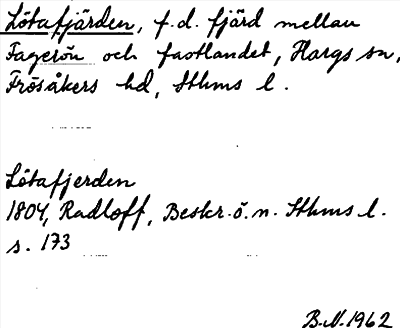 Lötafjärden, f.d. fjärd mellan
Fagerön och fastlandet, Hargs sn,
Frösåkers hd, Sthms l.
Lötafjerden
1804, Radloff, Beskr. ö. n. Sthms l.
s. 173
B.N. 1962